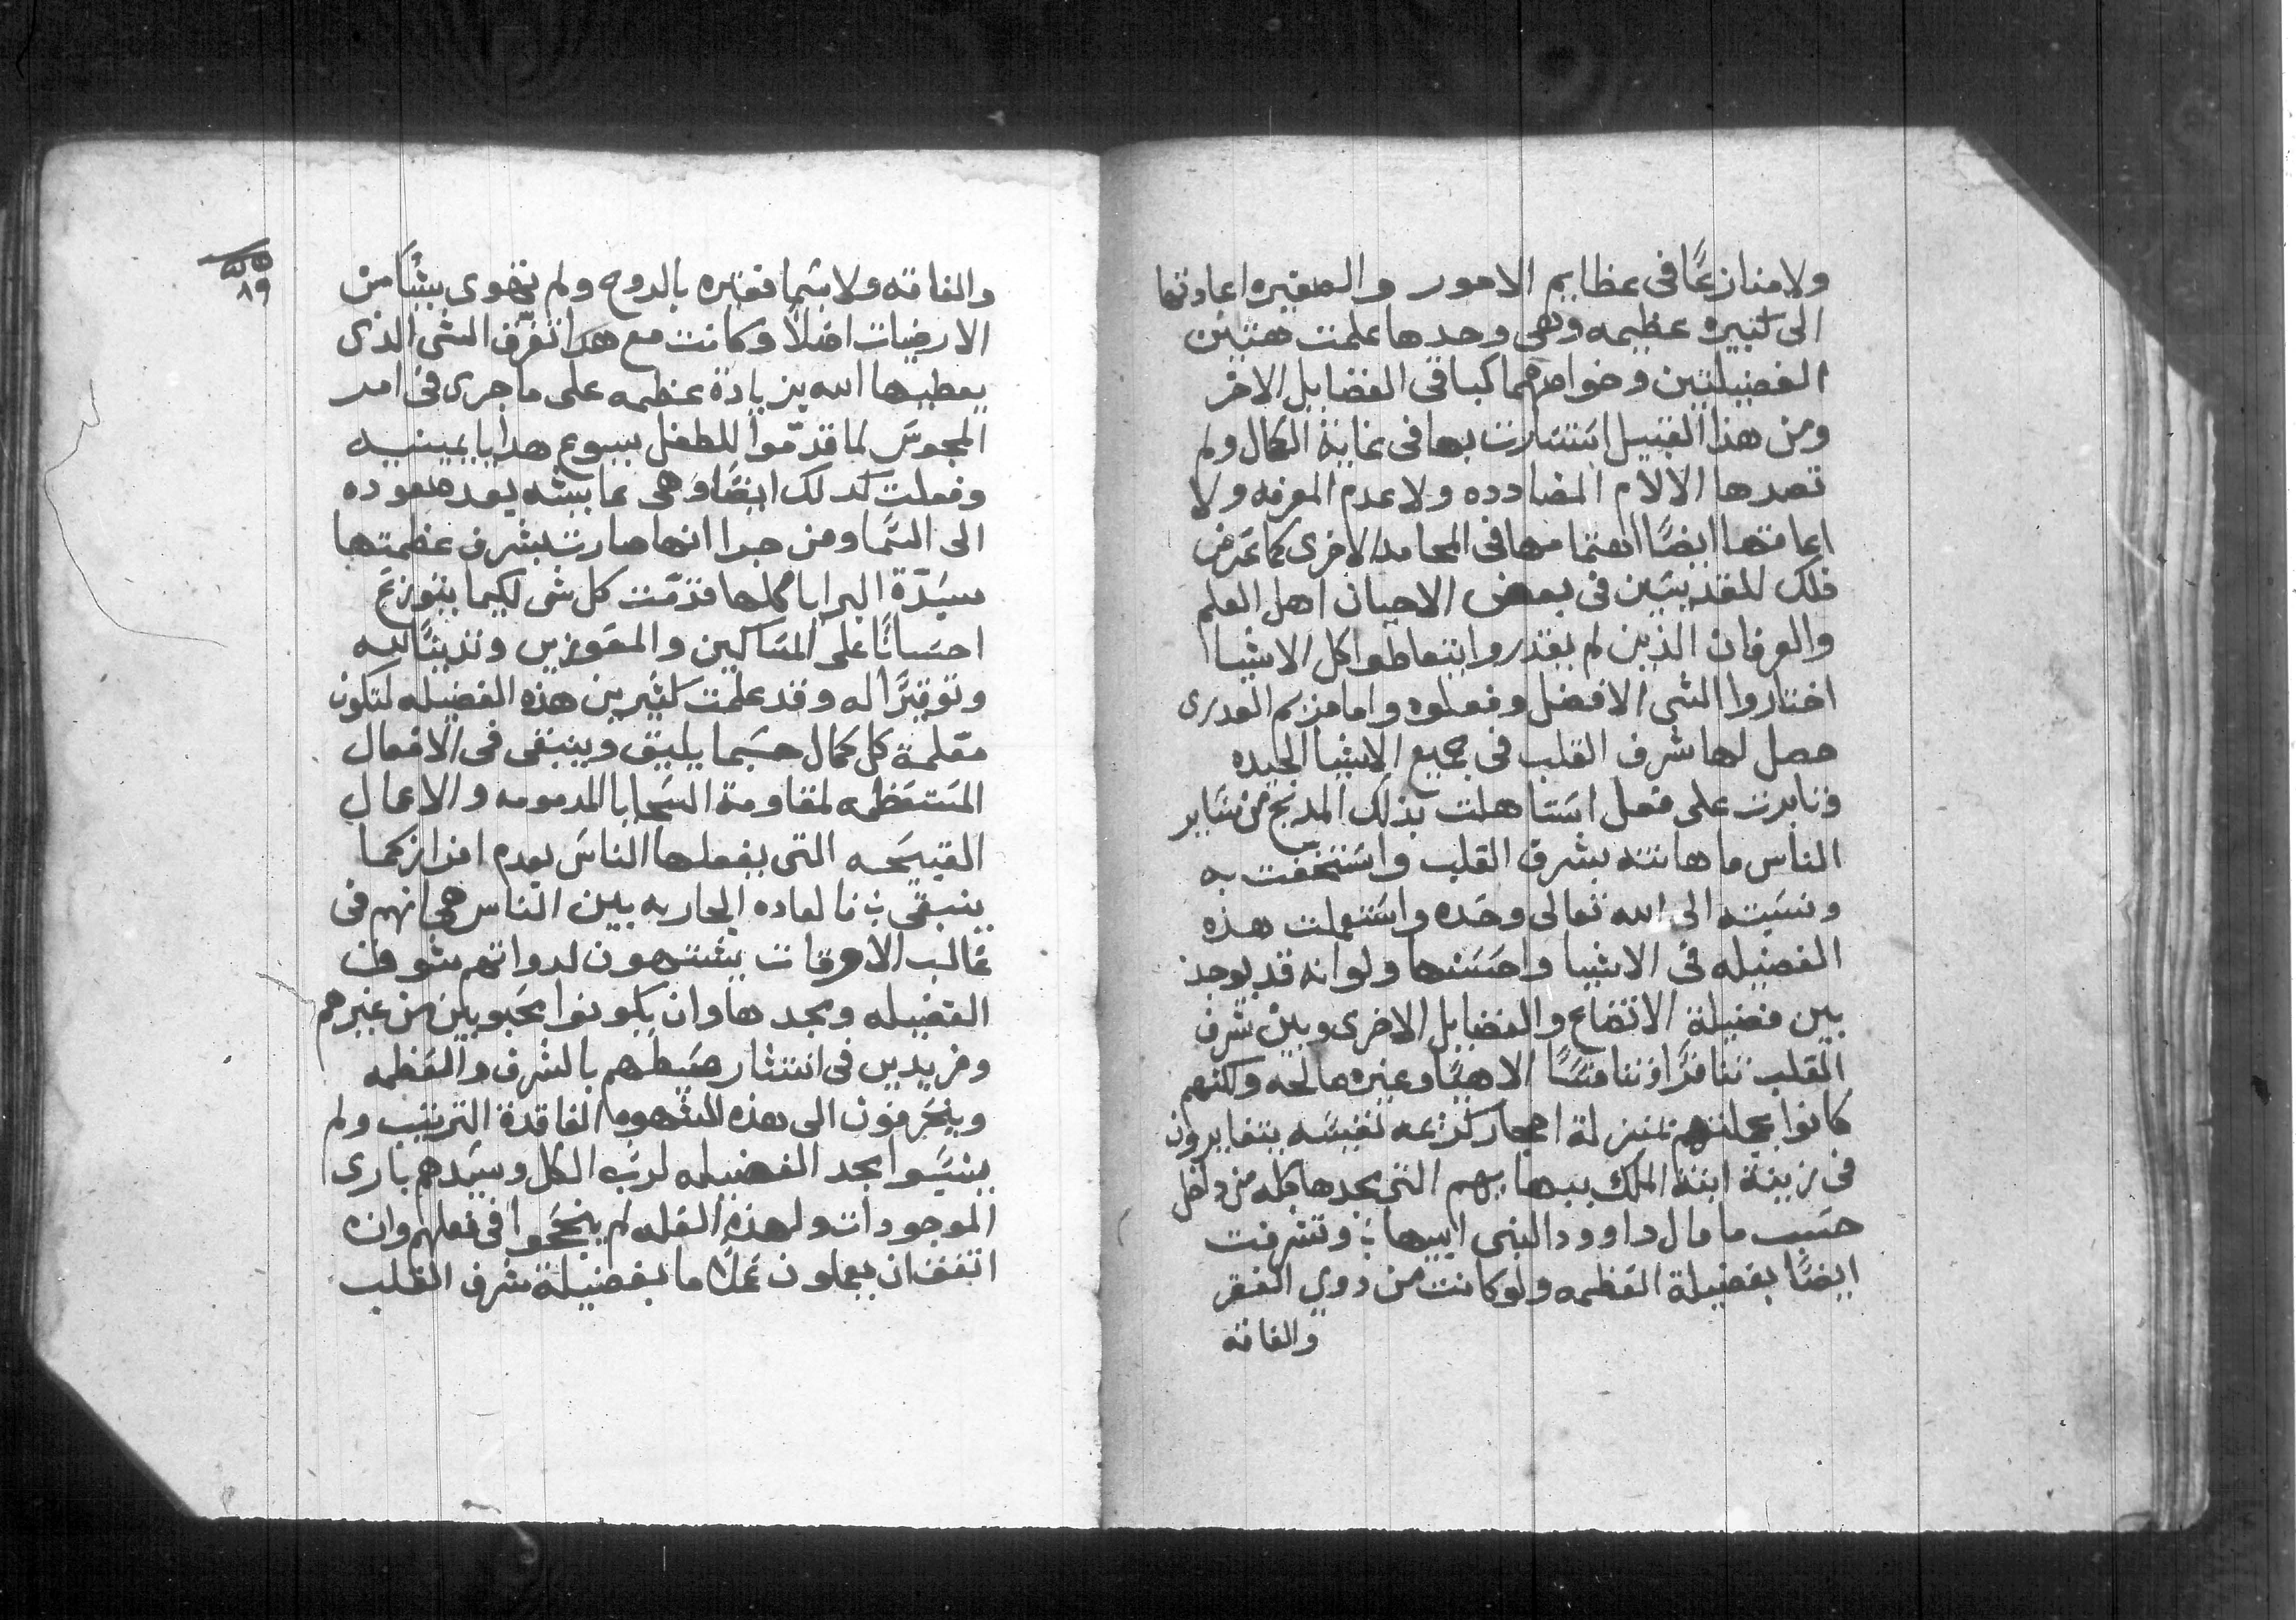 ولا منازعًا في عظايم الامور والصغيره اعادتها
الى كبيره عظيمه وهي وحدها علمت هتين
الفضيلتين وخواصهما كباقي الفضايل الاخر
ومن هذا القبيل استنارت بها في غاية الكمال ولم
تصدها الالام المضادده ولا عدم المعرفه ولا
اعاقتها ايضًا اهتمامها في المحامد الاخرى كما عرض
ذلك للمقديسين في بعض الاحيان اهل العلم
والعرفان الذين لم يقدروا يتعاطوا كل الاشيا
اختاروا الشي الافضل وفعلوه واما مريم العدرى
حصل لها شرف القلب في جميع الاشيا الجيده
وثابرت على فعل استاهلت بذلك المديح من ساير
الناس ما هانته بشرف القلب واستخفت به
ونسبته الى الله تعالى وحده واستعملت هذه
الفضيله في الاشيا واحسنها ولو انه قد يوجد
بين فضيلة الاتضاع والفضايل الاخرى وبين شرف
القلب تنافرًا وتنافسًا الاهيًا وغيره صالحه ولكنهم
كانوا بجملتهم بمنزلة احجار كريمه نفيسه يتغايرون
في زينة ابنة الملك ببهايهم التي مجدها كله من داخل
حسب ما قال داوود النبي ابيها ؛ وتشرفت
ايضًا بفضيلة العظمه ولو كانت من دوي الفقر
والفاقه
٨٩
والفاقه ولا سيما فقيره بالروح ولم تهوى بشيًا من
الارضيات اصلًا وكانت مع هذا تفرق الشي الذي
يعطيها الله بزيادة عظمه على ما جرى في امر
المجوس لما قدموا للطفل يسوع هدايا ثمينيه
وفعلت كدلك ايضًا وهي عايشه بعد صعوده
الى السما ومن جرا انها صارت بشرف عظمتها
سيدة البرايا كملها قدمت كل شي لكيما يتوزع
احسانًا على المساكين والمعوزين وتدينًا لله
وتوقيرًا له وقد علمت كثيرين هذه الفضيله لتكون
معلمة كل كمال حسبما يليق وينبغي في الافعال
المستعظمه لمقاومة السجايا المدمومه والاعمال
القبيحه التي يفعلها الناس بعدم افراز كما
ينبغي ؛ فالعاده الجاريه بين الناس هي انهم في
غالب الاوقات يشتهون لدواتهم شرف
الفضيله ومجدها وان يكونوا محبوبين من غيرهم
ومريدين في انتشار صيطهم بالشرف والعظمه
وينحرفون الى هذه الشهوه الفاقدة الترتيب ولم
ينسبوا مجد الفضيله لرب الكل وسيدهم باري
الموجودات ولهذه العله لم ينجحوا في فعلهم وان
اتفق ان يعملون عملًا ما بفضيلة شرف القلب